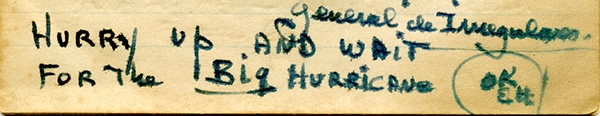 General de Irregulares.
HURRY UP AND WAIT
FOR THE Big HURRICANE
OK
EH